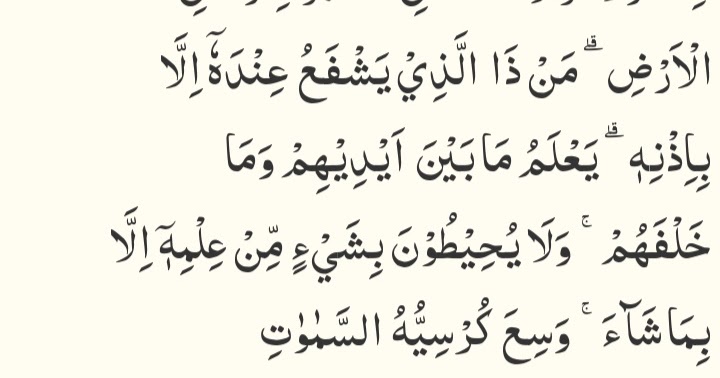 الْاَرْضِ ۗ مَنْ ذَا الَّذِيْ يَشْفَعُ عِنْدَهٗٓ اِلَّا
بِاِذْنِهٖ ۗ يَعْلَمُ مَا بَيْنَ اَيْدِيْهِمْ وَمَا
خَلْفَهُمْ ۚ وَلَا يُحِيْطُوْنَ بِشَيْءٍ مِّنْ عِلْمِهٖٓ اِلَّا
بِمَا شَاۤءَ ۚ وَسِعَ كُرْسِيُّهُ السَّمٰوٰتِ